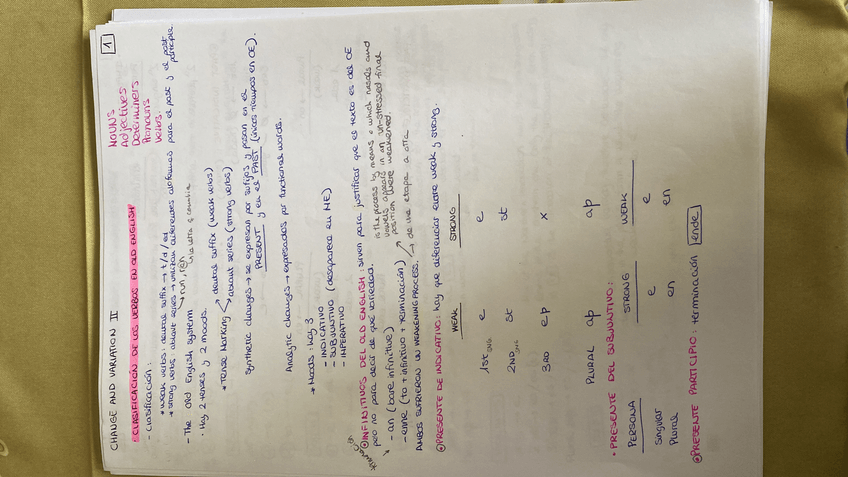 CHANGE AND VARIATION II
1
NOUNS
Adjectives
Determiners
Pronouns
Verbs.
• CLASIFICACIÓN DE LOS VERBOS EN OLD ENGLISH
- Clasificación:
* weak verbs: dental suffix → t/d/ed
* strong verbs: ablaut series → utilizan diferentes alófonos para el past y el past participle
→ run, ran
una letra q cambia
- The Old English System
• Hay 2 tenses y 2 moods.
* Tense Marking → dental suffix (weak verbs)
→ ablaut series (strong verbs)
Synthetic changes → se expresan por sufijos y pasan en el
PRESENT y en el PAST (únicos tiempos en OE).
Analytic changes → expresados por functional words.
* Moods: hay 3
- INDICATIVO
- SUBJUNTIVO (desaparece en ME)
- IMPERATIVO
⊙ INFINITIVOS DEL OLD ENGLISH: sirven para justificar que el texto es del OE
pero no para decir de qué variedad.
- an (bare infinitive)
- enne (to + infinitivo + terminación)
is the process by means o which nasals and
vowels appeary in an un-stressed final
position were weakened.
AMBOS SUFRIERON UN WEAKENING PROCESS. → de una etapa a otra
⊙ PRESENTE DE INDICATIVO: hay que diferenciar entre weak y strong.
WEAK STRONG
1st SING. e e
2ND SING st st
3RD ep x
PLURAL ap ap
• PRESENTE DEL SUBJUNTIVO:
PERSONA STRONG WEAK
Singular e e
Plural en en
⊙ PRESENTE PARTICIPIO: terminación ende